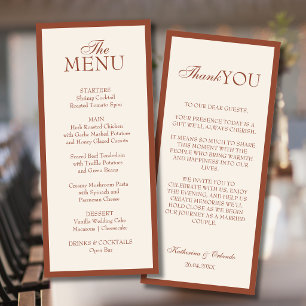 The
MENU
STARTERS
Shrimp Cocktail
Roasted Tomato Soup
MAIN
Herb Roasted Chicken
with Garlic Mashed Potatoes
and Honey Glazed Carrots
Seared Beef Tenderloin
with Truffle Potatoes
Green Beans
Creamy Mushroom Pasta
with Spinach and
Parmesan Cheese
DESSERT
Vanilla Wedding Cake
Macarons | Cheesecake
DRINKS & COCKTAILS
Open Bar
Thank YOU
TO OUR DEAR GUESTS,
YOUR PRESENCE TODAY IS A
GIFT WE'LL ALWAYS CHERISH.
IT MEANS SO MUCH TO SHARE
THIS MOMENT WITH THE
PEOPLE WHO BRING WARMTH
AND HAPPINESS INTO OUR
LIVES.
WE INVITE YOU TO
CELEBRATE WITH US, ENJOY
THE EVENING, AND HELP US
CREATE MEMORIES WE'LL
HOLD CLOSE AS WE BEGIN
OUR JOURNEY AS A MARRIED
COUPLE.
Katherina & Orlando
26.04.20XX